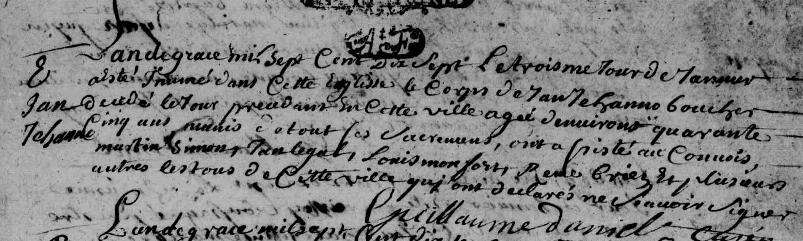 Lan de grace mil sept Cent Dix Sept Le troisme Jour de Janvier
E
a esté Inumé dans Cette Eglise le Corps de Jan Jehanno boucher
Jan decedé le Jour precedant En Cette ville agee denviron quarante
Jehanno Cinq ans munis de tout ses Sacremens, ont a sisté au Convois,
martin Simon, Jan legal, Louis monfort, René briet Et plusieurs
autres les tous de Cette ville qui ont declarés ne scavoir signer
Guillaume Daniel
Lan de grace mil sept Cent dix